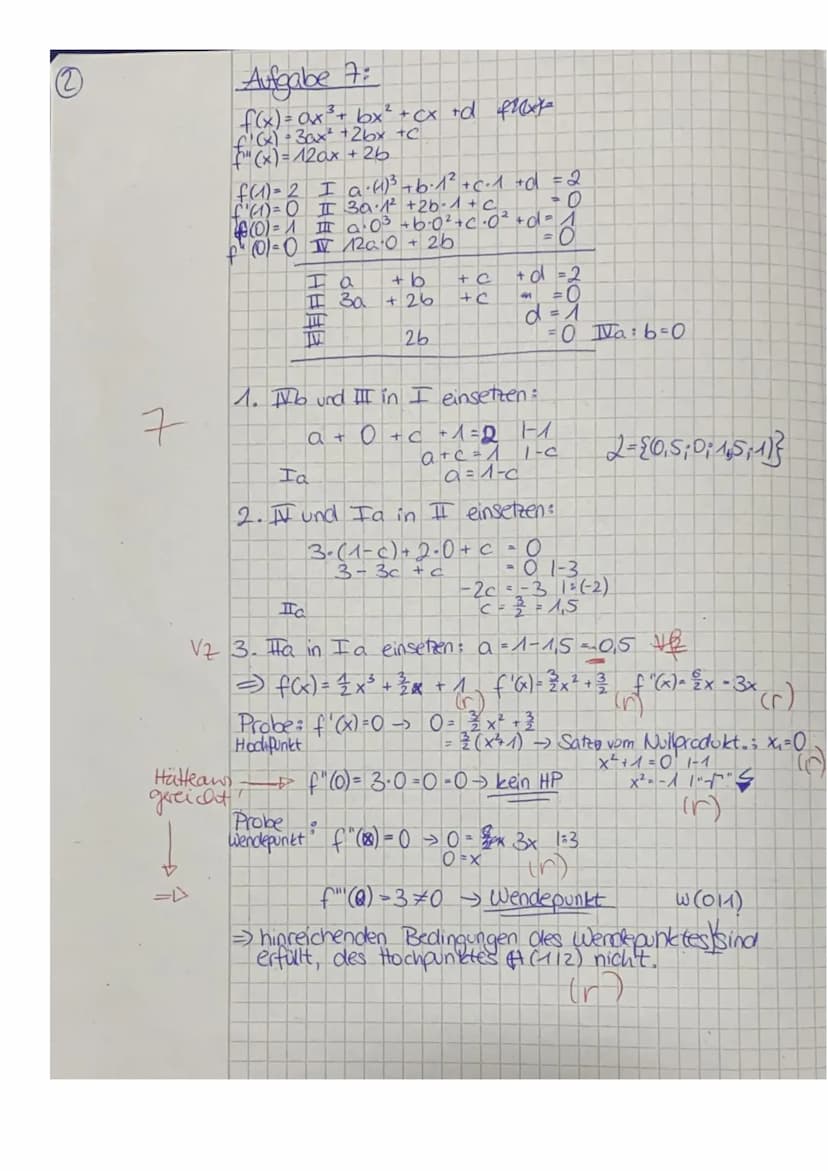 ②
Aufgabe 7:
f(x) = ax³ + bx² + cx + d
f'(x) = 3ax² + 2bx + c
f''(x) = 12ax + 2b
f(1) = 2 I a·(1)³ + b·1² + c·1 + d = 2
f'(1) = 0 II 3a·1² + 2b·1 + c = 0
f(0) = 1 III a·0³ + b·0² + c·0² + d = 1
f''(0) = 0 IV 12a·0 + 2b = 0
I a + b + c + d = 2
II 3a + 2b + c = 0
III d = 1
IV 2b = 0 IVa: b = 0
1. IVb und III in I einsetzen:
7
a + 0 + c + 1 = 2 |-1
a + c = 1 |-c
Ia a = 1-c
L = {0,5; 0; 1,5; 1)}
2. IV und Ia in II einsetzen:
3·(1-c) + 2·0 + c = 0
3 - 3c + c = 0 |-3
-2c = -3 |:(-2)
IIa c = 3/2 = 1,5
VZ 3. IIa in Ia einsetzen: a = 1-1,5 = 0,5
⇒ f(x) = 1/2 x³ + 3/2 x + 1 f'(x) = 3/2 x² + 3/2 f''(x) = 6/2 x = 3x
(r) (r) (r)
Probe: f'(x) = 0 → 0 = 3/2 x² + 3/2
Hochpunkt = 3/2 (x²+1) → Satz vom Nullprodukt.: x₁ = 0
x² + 1 = 0 |-1 (r)
Hätte ausgereicht! → f''(0) = 3·0 = 0 = 0 → kein HP x² = -1 |"√" ↯
(r)
Probe
Wendepunkt: f''(x) = 0 → 0 = 3x |:3
0 = x (r)
⇒ f'''(0) = 3 ≠ 0 → Wendepunkt W(0|1)
⇒ hinreichenden Bedingungen des Wendepunktes sind
erfüllt, des Hochpunktes H(1|2) nicht.
(r)